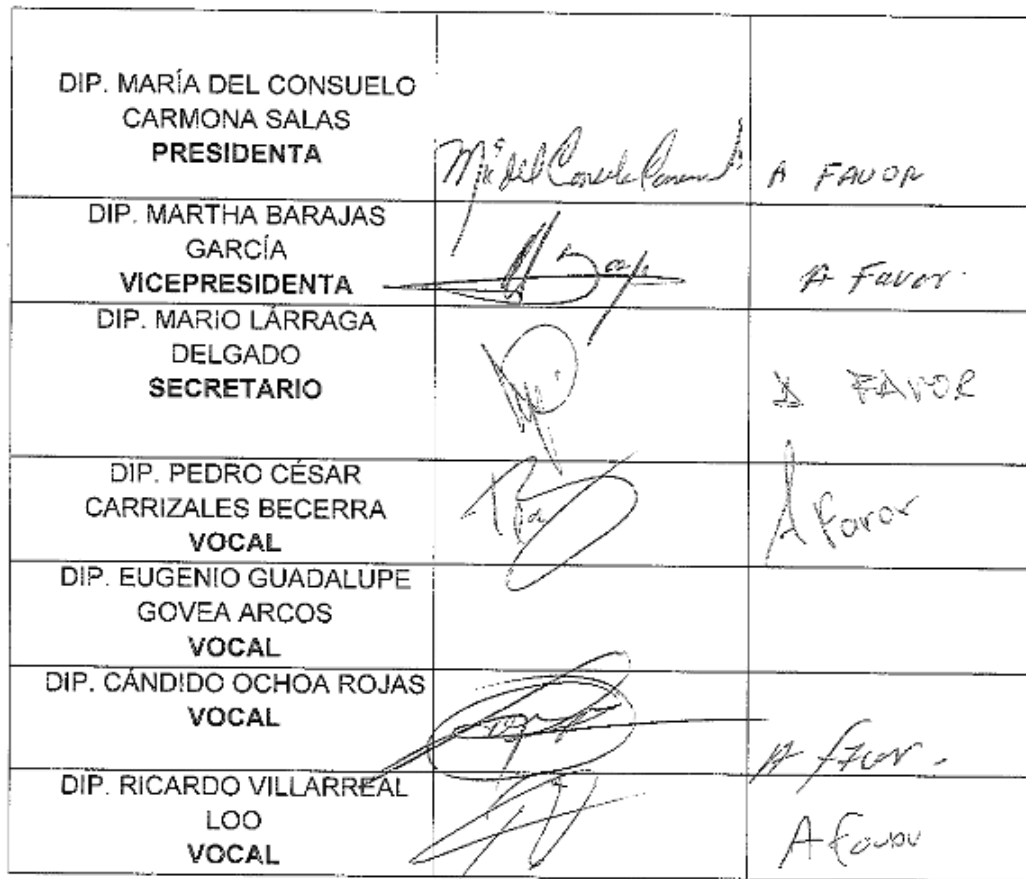 DIP. MARÍA DEL CONSUELO
CARMONA SALAS
PRESIDENTA
Mª del Consuelo Carmona S
A FAVOR
DIP. MARTHA BARAJAS
GARCÍA
VICEPRESIDENTA
A Favor.
DIP. MARIO LÁRRAGA
DELGADO
SECRETARIO
A FAVOR
DIP. PEDRO CÉSAR
CARRIZALES BECERRA
VOCAL
A Favor
DIP. EUGENIO GUADALUPE
GOVEA ARCOS
VOCAL
DIP. CÁNDIDO OCHOA ROJAS
VOCAL
A favor.
DIP. RICARDO VILLARREAL
LOO
VOCAL
A favor